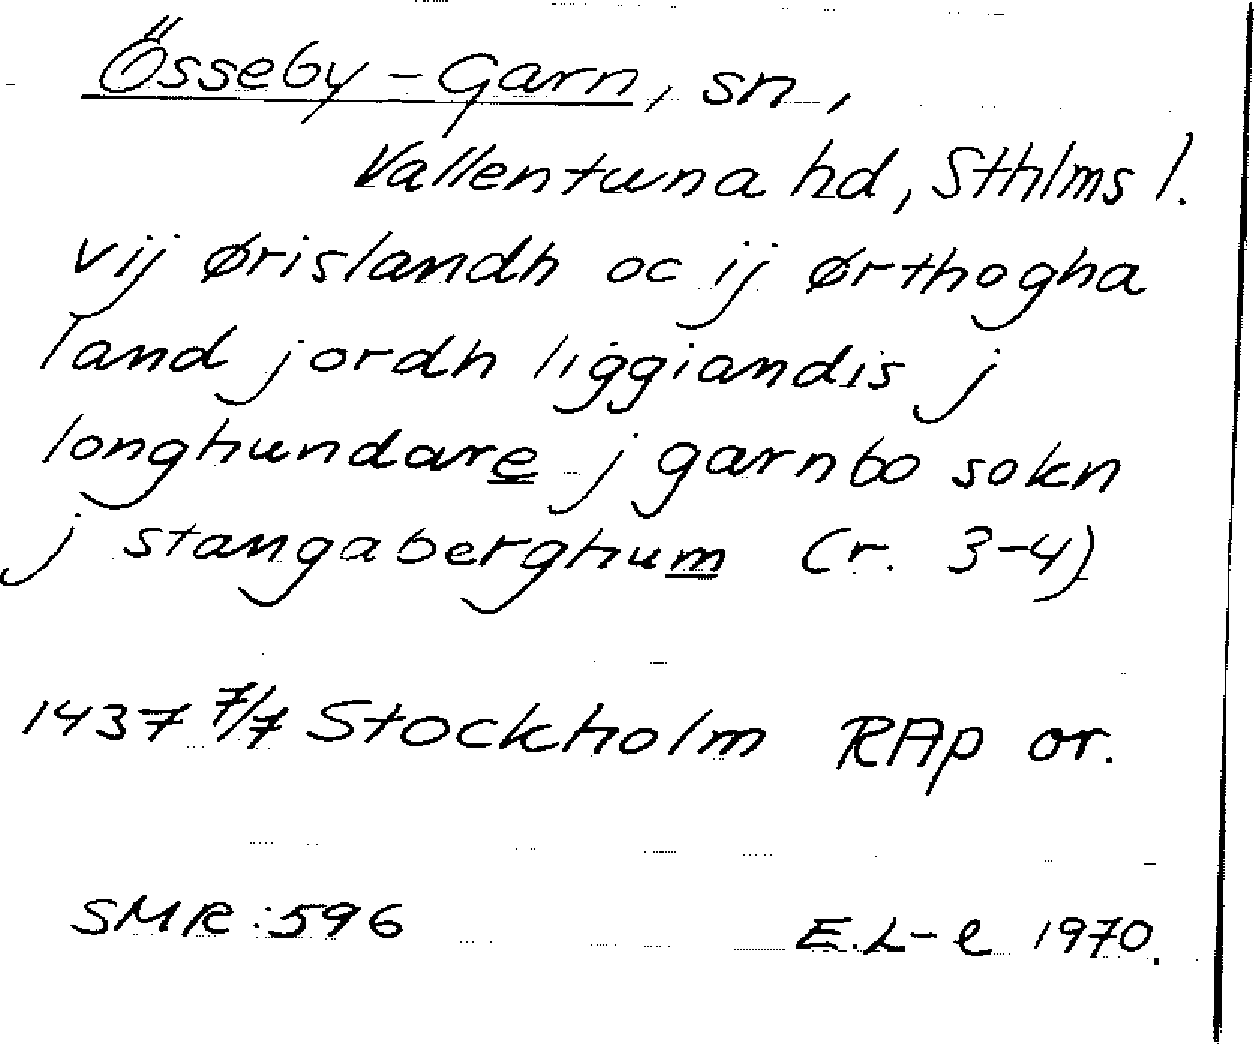 Össeby-Garn, sn,
Vallentuna hd, Sthlms l.
vij ørislandh oc ij ørthogha
land jordh liggiandis j
longhundare j garnbo sokn
j stangaberghum (r. 3-4)
1437 7/7 Stockholm RAp or.
SMR:596 E.L-e 1970.